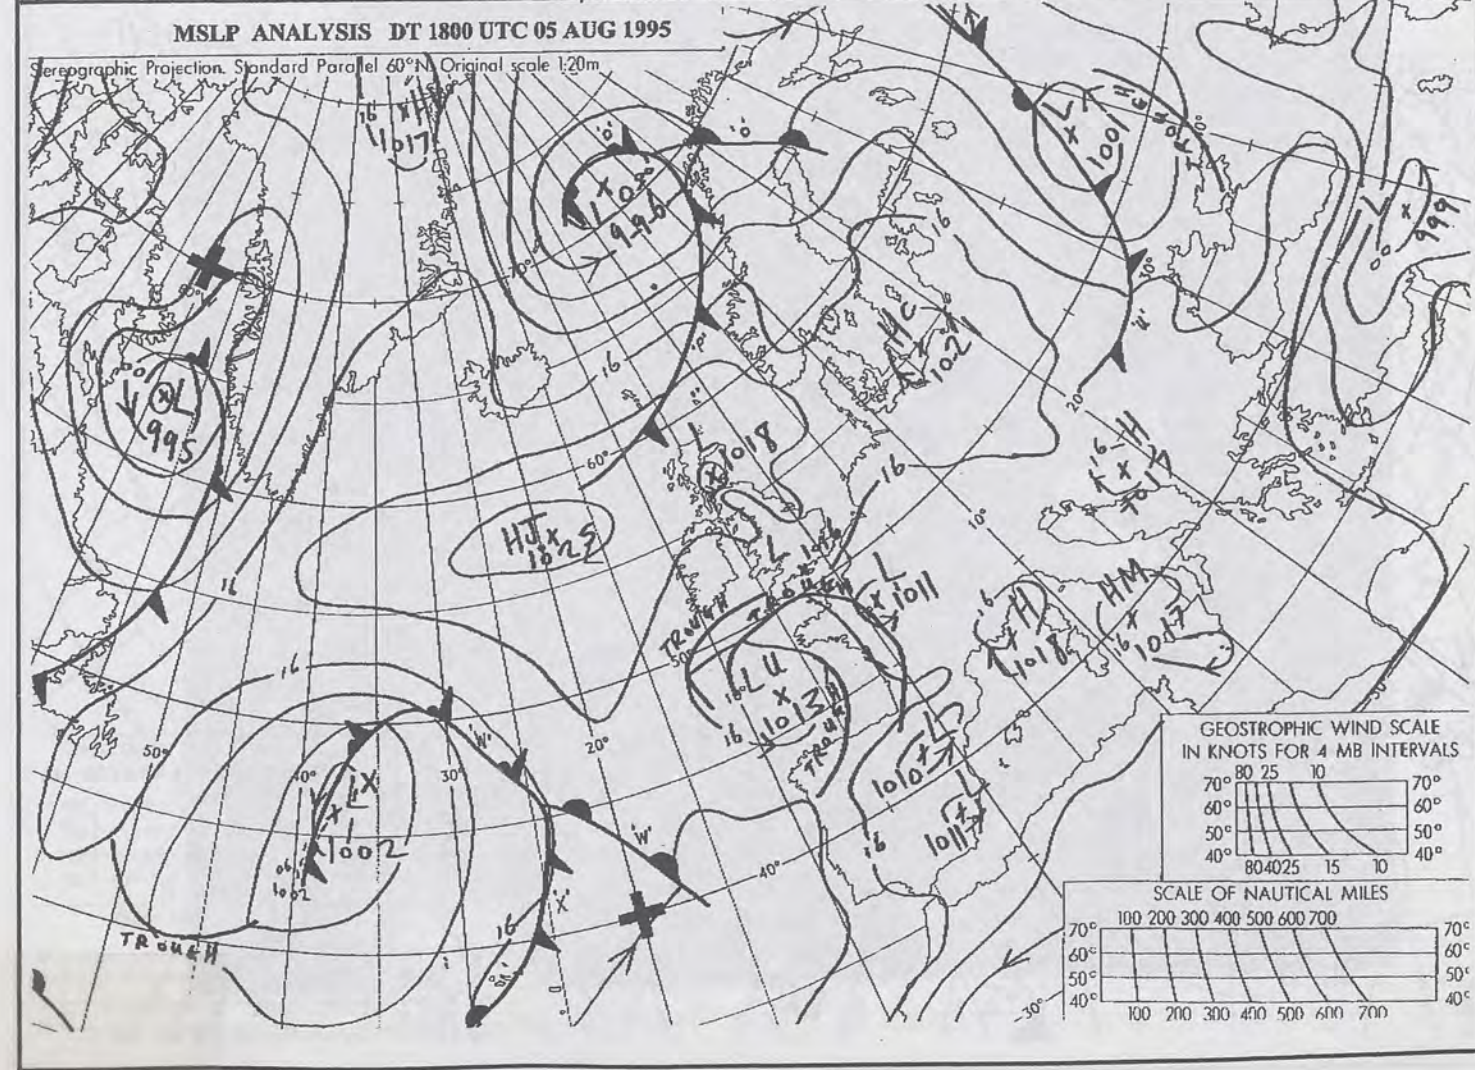 MSLP ANALYSIS DT 1800 UTC 05 AUG 1995
Stereographic Projection. Standard Parallel 60°N. Original scale 1:20m
16 H
1017
'O' 'O'
L O
996
L
1001
TROUGH
L
999
16
70°
30°
HC
1021
'P'
16
L
995
L
1018
20°
16 H
1017
60°
16
HJ
1025
10°
16
L
1016
L
1011
TROUGH
TROUGH
50°
16 H
1018
HM
16 1017
16
LU
1013
16
TROUGH
50°
40°
30°
20°
'W'
LX
1002
1002
'W'
'X'
16
TROUGH
40°
L
1010
L
1011
16
30°
GEOSTROPHIC WIND SCALE
IN KNOTS FOR 4 MB INTERVALS
80 25 10
70° 70°
60° 60°
50° 50°
40° 40°
80 40 25 15 10
SCALE OF NAUTICAL MILES
100 200 300 400 500 600 700
70° 70°
60° 60°
50° 50°
40° 40°
100 200 300 400 500 600 700